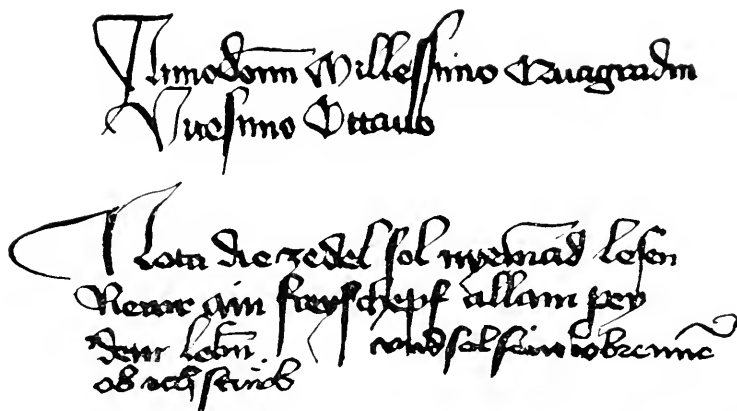 Anno dom̄ Millessimo
Vicesimo Ottauo
Nota die zedel sol nyemād lesen
Newr ain freyschepf allain pey
dem lebn̄ vnd sol sein vbrennē
ob ich stirb